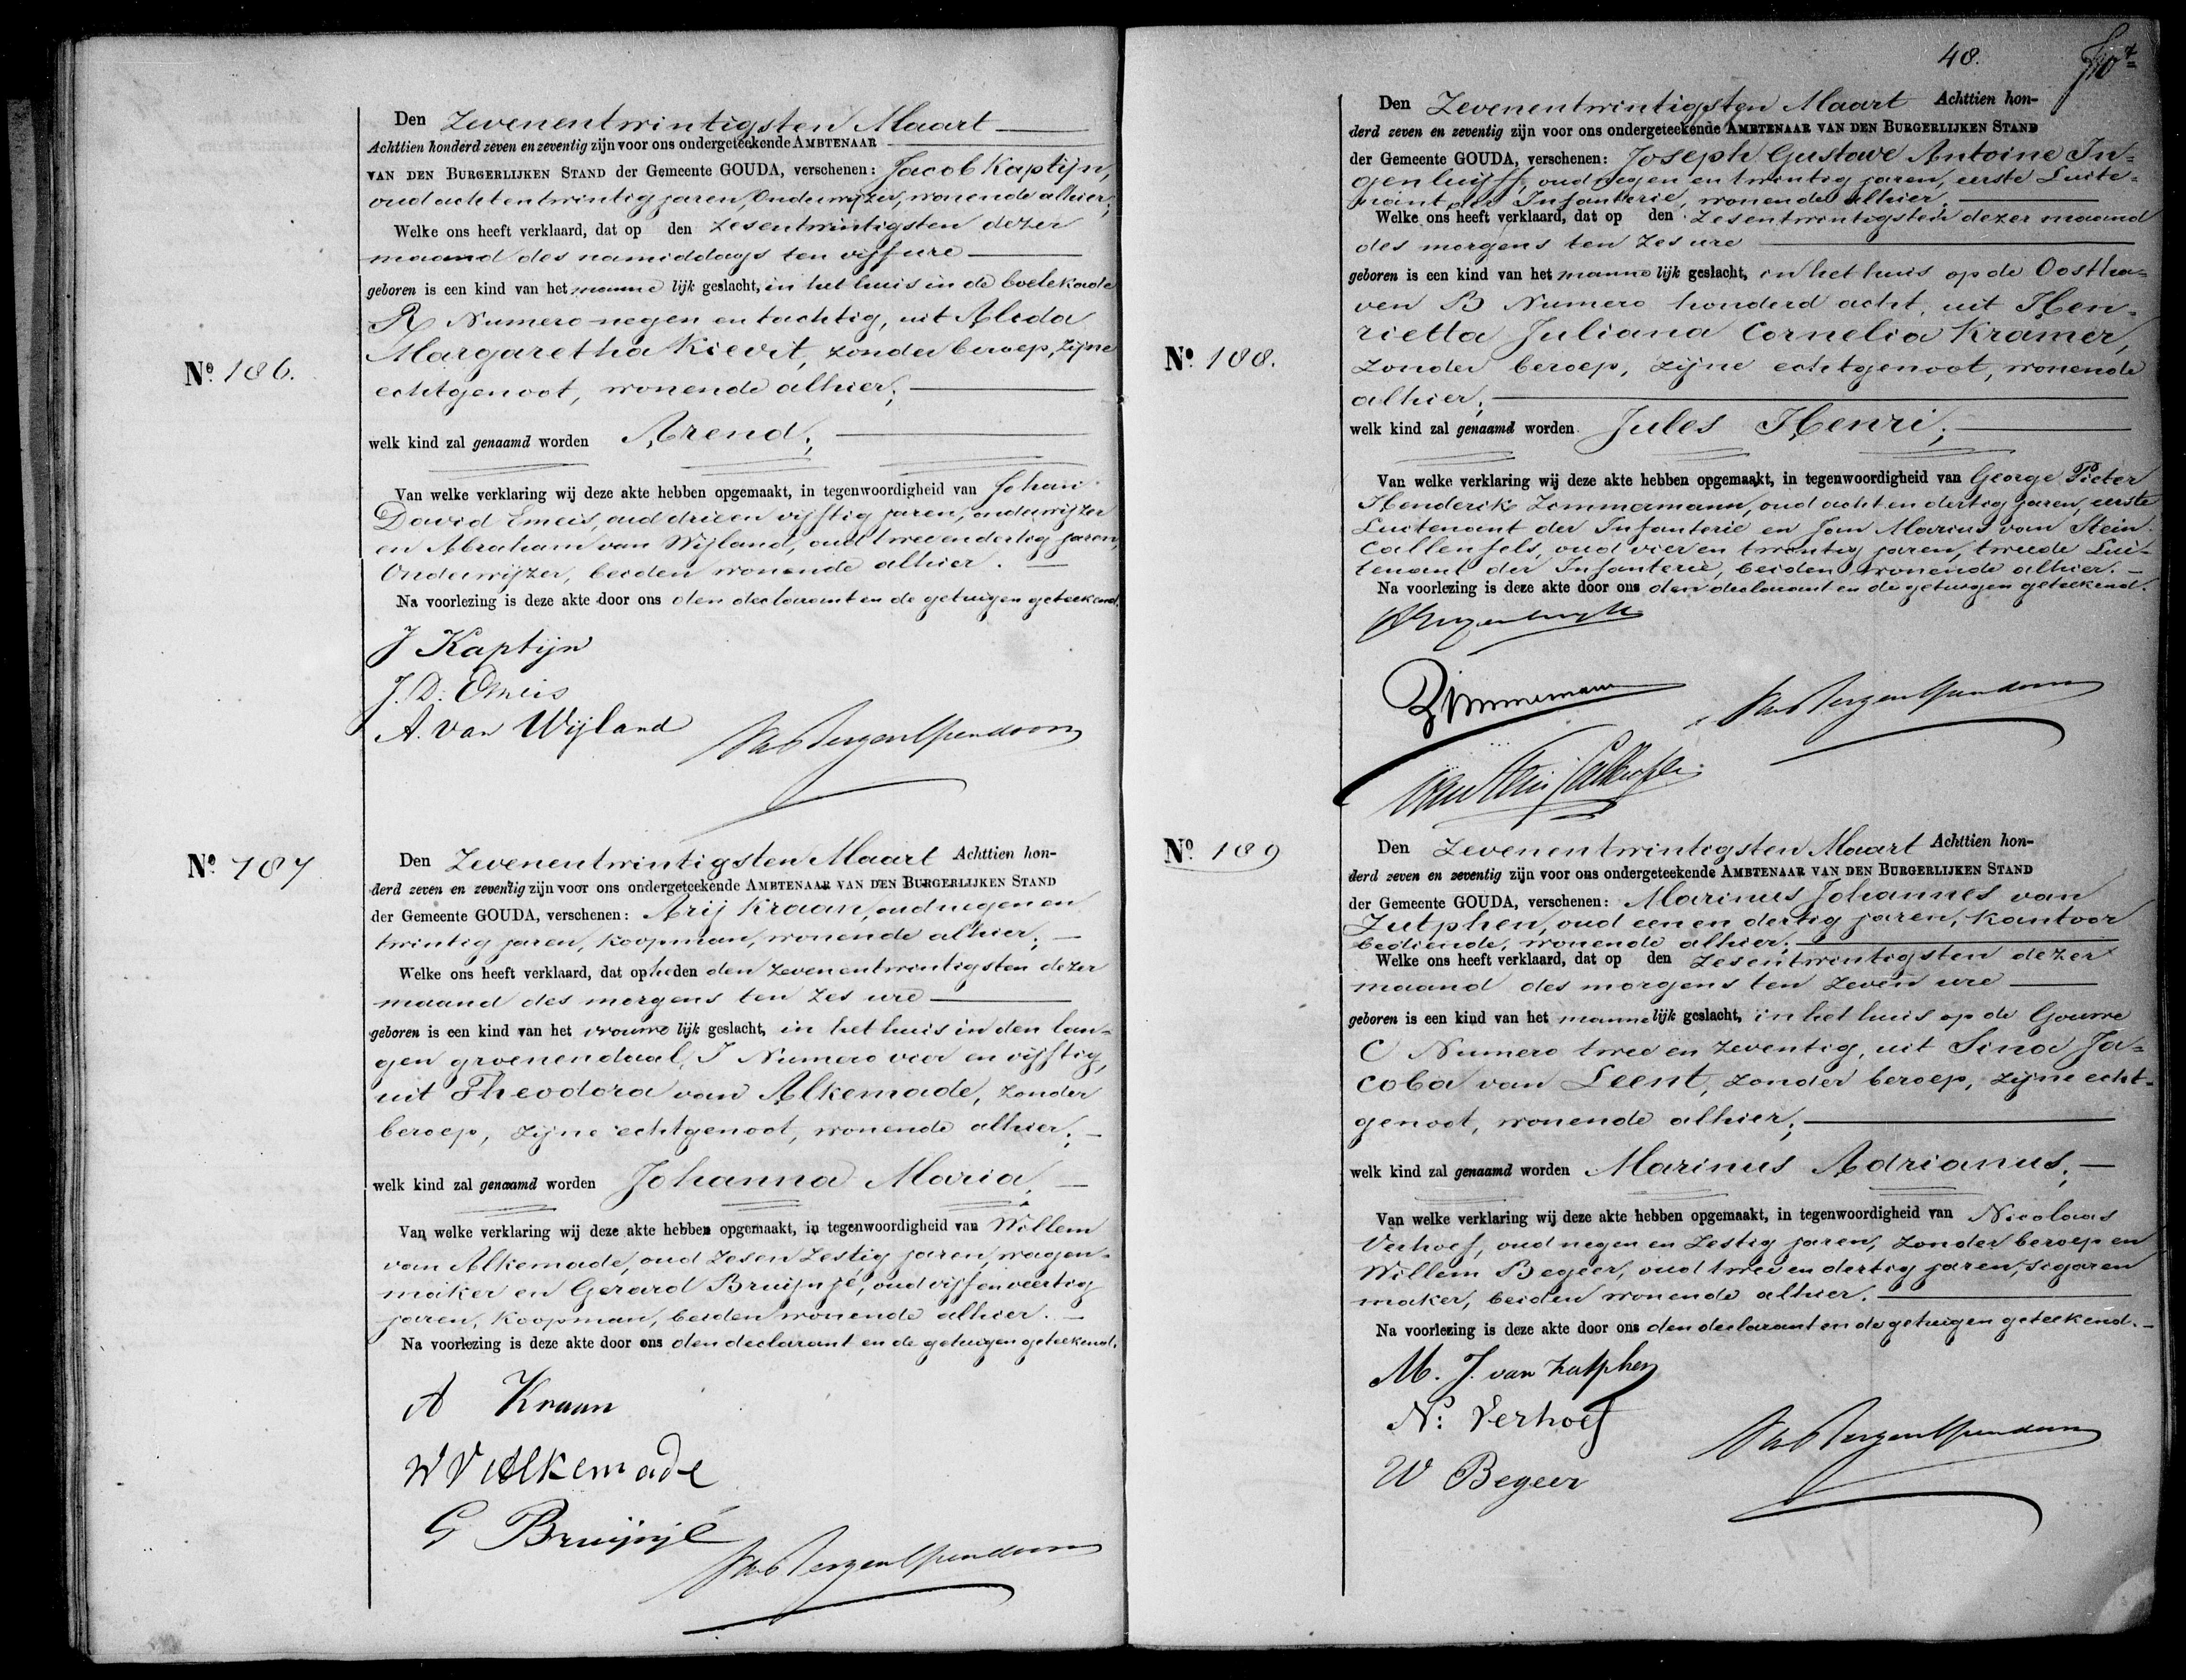 Nº 186.
Den Zevenentwintigsten Maart
Achttien honderd zeven en zeventig zijn voor ons ondergeteekende AMBTENAAR
VAN DEN BURGERLIJKEN STAND der Gemeente GOUDA, verschenen: Jacob Kaptijn,
oud achtentwintig jaren, Onderwijzer, wonende alhier;
Welke ons heeft verklaard, dat op den zesentwintigsten dezer
maand des namiddags ten vijf ure
geboren is een kind van het mannelijk geslacht, in het huis in de boelekade
R Numero negen en tachtig, uit Alida
Margaretha Kievit, zonder beroep, zijne
echtgenoot, wonende alhier;
welk kind zal genaamd worden Arend;
Van welke verklaring wij deze akte hebben opgemaakt, in tegenwoordigheid van Johan
David Emeis, oud drie en vijftig jaren, onderwijzer
en Abraham van Wijland, oud tweeendertig jaren,
Onderwijzer, beiden wonende alhier.
Na voorlezing is deze akte door ons den declarant en de getuigen geteekend.
J Kaptijn
J. D. Emeis
A. van Wijland
Nº 187
Den Zevenentwintigsten Maart Achttien hon-
derd zeven en zeventig zijn voor ons ondergeteekende AMBTENAAR VAN DEN BURGERLIJKEN STAND
der Gemeente GOUDA, verschenen: Arij Kraan, oud negen en
twintig jaren, koopman, wonende alhier;
Welke ons heeft verklaard, dat op heden den zevenentwintigsten dezer
maand des morgens ten zes ure
geboren is een kind van het vrouwelijk geslacht, in het huis in den lan-
gen groenendaal, I Numero vier en vijftig,
uit Theodora van Alkemade, zonder
beroep, zijne echtgenoot, wonende alhier;
welk kind zal genaamd worden Johanna Maria;
Van welke verklaring wij deze akte hebben opgemaakt, in tegenwoordigheid van Willem
van Alkemade, oud zesen zestig jaren, wagen-
maker en Gerard Bruijnjé, oud vijf en veertig
jaren, Koopman, beiden wonende alhier.
Na voorlezing is deze akte door ons den declarant en de getuigen geteekend.
A Kraan
W V Alkemade
G Bruijnjé
48.
Nº 188.
Den Zevenentwintigsten Maart Achttien hon-
derd zeven en zeventig zijn voor ons ondergeteekende AMBTENAAR VAN DEN BURGERLIJKEN STAND
der Gemeente GOUDA, verschenen: Joseph Gustave Antoine In-
genluijff, oud negen en twintig jaren, eerste Luite-
nant der Infanterie, wonende alhier.
Welke ons heeft verklaard, dat op den zesentwintigsten dezer maand
des morgens ten zes ure
geboren is een kind van het mannelijk geslacht, in het huis op de Oostha-
ven B Numero honderd acht, uit Hen-
rietta Juliana Cornelia Kramer,
zonder beroep, zijne echtgenoot, wonende
alhier;
welk kind zal genaamd worden Jules Henri;
Van welke verklaring wij deze akte hebben opgemaakt, in tegenwoordigheid van George Pieter
Henderik Zimmermann, oud acht en dertig jaren, eerste
Luitenant der Infanterie en Jan Marius van Stein
Callenfels, oud vier en twintig jaren, tweede Lui-
tenant der Infanterie, beiden wonende alhier.
Na voorlezing is deze akte door ons den declarant en de getuigen geteekend.
Zimmermann
van Stein Callenfels
Nº 189
Den Zevenentwintigsten Maart Achttien hon-
derd zeven en zeventig zijn voor ons ondergeteekende AMBTENAAR VAN DEN BURGERLIJKEN STAND
der Gemeente GOUDA, verschenen: Marinus Johannes van
Zutphen, oud een en dertig jaren, kantoor
bediende, wonende alhier;
Welke ons heeft verklaard, dat op den zesentwintigsten dezer
maand des morgens ten zeven ure
geboren is een kind van het mannelijk geslacht, in het huis op de Gouwe
C Numero twee en zeventig, uit Sina Ja-
coba van Leent, zonder beroep, zijne echt-
genoot, wonende alhier;
welk kind zal genaamd worden Marinus Adrianus;
Van welke verklaring wij deze akte hebben opgemaakt, in tegenwoordigheid van Nicolaas
Verhoef, oud negen en zestig jaren, zonder beroep en
Willem Begeer, oud twee en dertig jaren, sigaren
maker, beiden wonende alhier.
Na voorlezing is deze akte door ons den declarant en de getuigen geteekend.
M. J. van Zutphen
N: Verhoef
W Begeer